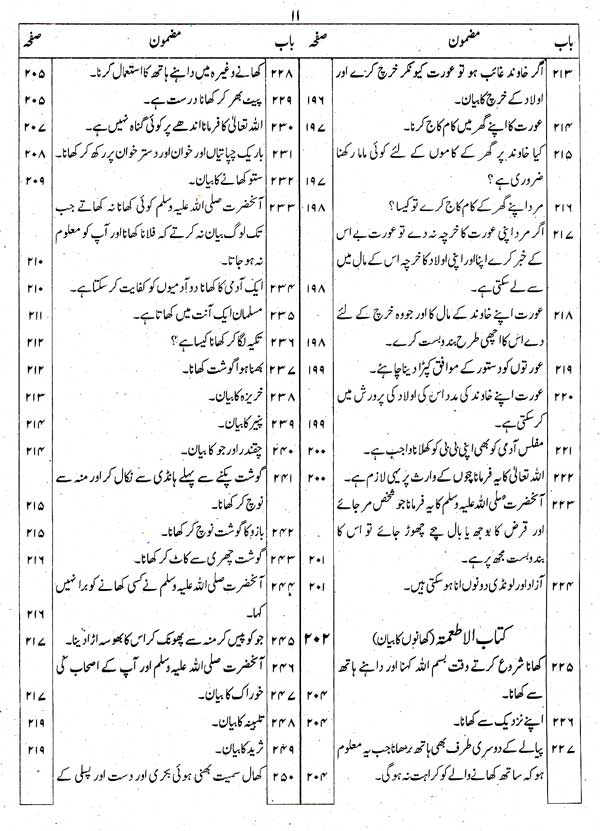 ۱۱
باب مضمون صفحہ
۲۱۳ اگر خاوند غائب ہو تو عورت کیونکر خرچ کرے اور
اولاد کے خرچ کا بیان۔ ۱۹۶
۲۱۴ عورت کا اپنے گھر میں کام کاج کرنا۔ ۱۹۷
۲۱۵ کیا خاوند پر گھر کے کاموں کے لئے کوئی ماما رکھنا
ضروری ہے؟ ۱۹۷
۲۱۶ مرد اپنے گھر کے کام کاج کرے تو کیسا؟ ۱۹۸
۲۱۷ اگر مرد اپنی عورت کا خرچہ نہ دے تو عورت بے اس
کے خبر کرے اپنا اور اپنی اولاد کا خرچہ اس کے مال میں
سے لے سکتی ہے۔ ۱۹۸
۲۱۸ عورت اپنے خاوند کے مال کا اور جو وہ خرچ کے لئے
دے اس کا اچھی طرح بندوبست کرے۔ ۱۹۸
۲۱۹ عورتوں کو دستور کے موافق کپڑا دینا چاہئے۔ ۱۹۹
۲۲۰ عورت اپنے خاوند کی مدد اس کی اولاد کی پرورش میں
کر سکتی ہے۔ ۱۹۹
۲۲۱ مفلس آدمی کو بھی اپنی بی بی کو کھلانا واجب ہے۔ ۲۰۰
۲۲۲ اللہ تعالیٰ کا یہ فرمانا بچوں کے وارث پر یہی لازم ہے۔ ۲۰۰
۲۲۳ آنحضرت صلی اللہ علیہ وسلم کا یہ فرمانا جو شخص مر جائے
اور قرض کا بوجھ یا بال بچے چھوڑ جائے تو اس کا
بندوبست مجھ پر ہے۔ ۲۰۱
۲۲۴ آزاد اور لونڈی دونوں انا ہو سکتی ہیں۔ ۲۰۱
کتاب الاطعمۃ (کھانوں کا بیان) ۲۰۲
۲۲۵ کھانا شروع کرتے وقت بسم اللہ کہنا اور داہنے ہاتھ
سے کھانا۔ ۲۰۴
۲۲۶ اپنے نزدیک سے کھانا۔ ۲۰۴
۲۲۷ پیالے کے دوسری طرف بھی ہاتھ بڑھانا جب یہ معلوم
ہو کہ ساتھ کھانے والے کو کراہت نہ ہوگی۔ ۲۰۴
باب مضمون صفحہ
۲۲۸ کھانے وغیرہ میں داہنے ہاتھ کا استعمال کرنا۔ ۲۰۵
۲۲۹ پیٹ بھر کر کھانا درست ہے۔ ۲۰۵
۲۳۰ اللہ تعالیٰ کا فرمانا اندھے پر کوئی گناہ نہیں ہے۔ ۲۰۷
۲۳۱ باریک چپاتیاں اور خوان اور دستر خوان پر رکھ کر کھانا۔ ۲۰۸
۲۳۲ ستو کھانے کا بیان۔ ۲۰۹
۲۳۳ آنحضرت صلی اللہ علیہ وسلم کوئی کھانا نہ کھاتے جب
تک لوگ بیان نہ کرتے کہ فلانا کھانا اور آپ کو معلوم
نہ ہو جاتا۔ ۲۱۰
۲۳۴ ایک آدمی کا کھانا دو آدمیوں کو کفایت کر سکتا ہے۔ ۲۱۰
۲۳۵ مسلمان ایک آنت میں کھاتا ہے۔ ۲۱۱
۲۳۶ تکیہ لگا کر کھانا کیسا ہے؟ ۲۱۲
۲۳۷ بھنا ہوا گوشت کھانا۔ ۲۱۲
۲۳۸ خریزہ کا بیان۔ ۲۱۳
۲۳۹ پنیر کا بیان۔ ۲۱۴
۲۴۰ چقندر اور جو کا بیان۔ ۲۱۴
۲۴۱ گوشت پکنے سے پہلے ہانڈی سے نکال کر اور منہ سے
نوچ کر کھانا۔ ۲۱۵
۲۴۲ بازو کا گوشت نوچ کر کھانا۔ ۲۱۵
۲۴۳ گوشت چھری سے کاٹ کر کھانا۔ ۲۱۶
۲۴۴ آنحضرت صلی اللہ علیہ وسلم نے کسی کھانے کو برا نہیں
کہا۔ ۲۱۶
۲۴۵ جو کو پیس کر منہ سے پھونک کر اس کا بھوسہ اڑا دینا۔ ۲۱۷
۲۴۶ آنحضرت صلی اللہ علیہ وسلم اور آپ کے اصحاب کی
۲۴۷ خوراک کا بیان۔ ۲۱۷
۲۴۸ تلبینہ کا بیان۔ ۲۱۹
۲۴۹ ثرید کا بیان۔ ۲۱۹
۲۵۰ کھال سمیت بھنی ہوئی بکری اور دست اور پسلی کے